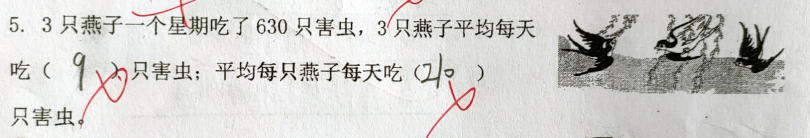 5. 3只燕子一个星期吃了630只害虫，3只燕子平均每天
吃（ 9 ）只害虫；平均每只燕子每天吃（210 ）
只害虫。